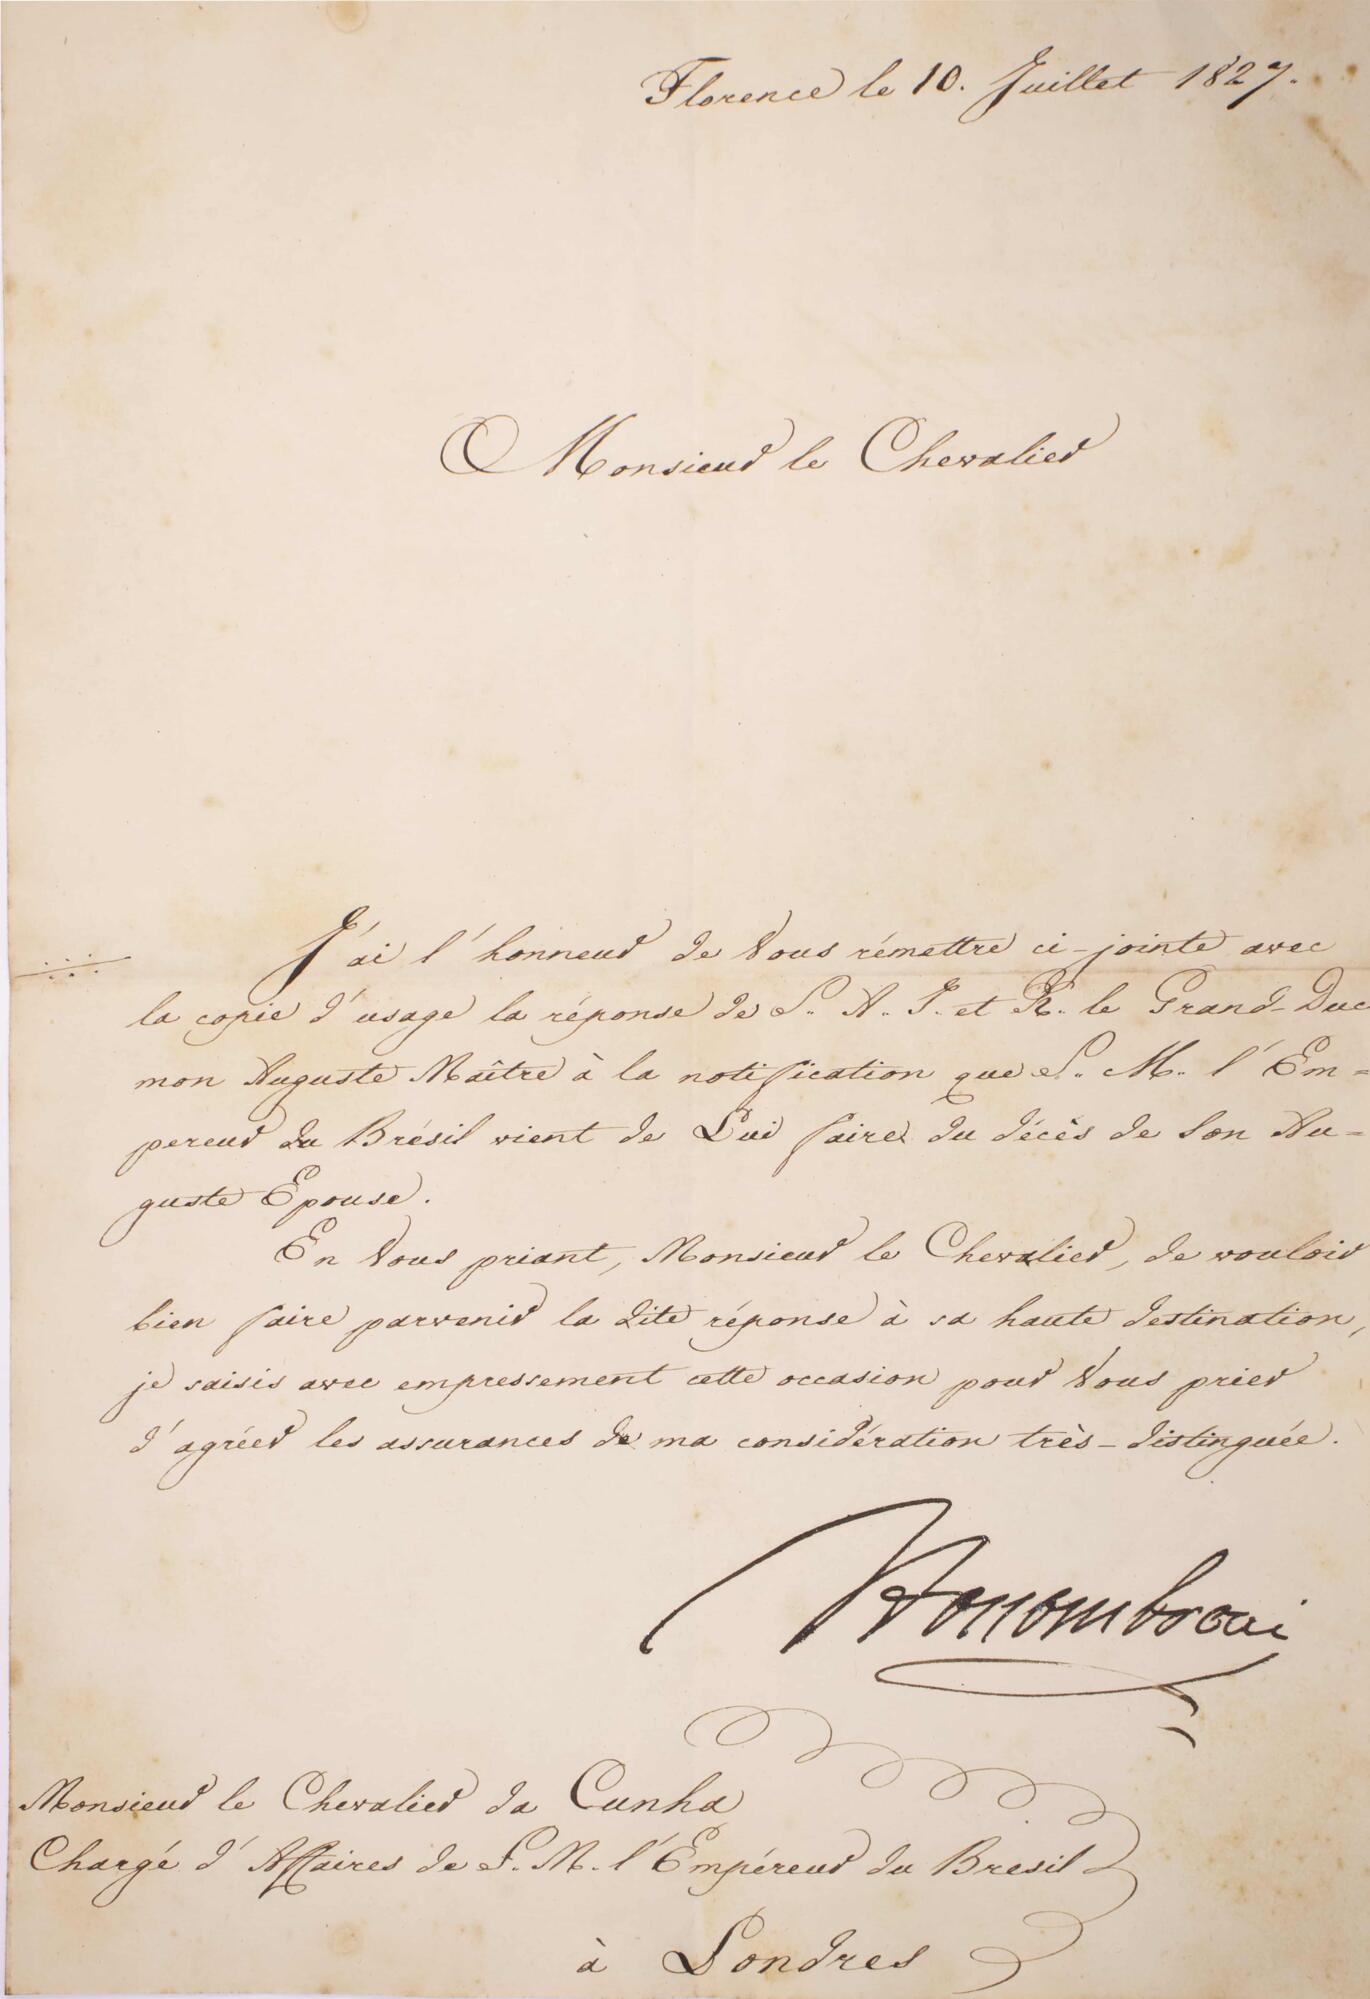 Florence le 10. Juillet 1827.
Monsieur le Chevalier
J'ai l'honneur de Vous rémettre ci-jointe avec
la copie d'usage la réponse de S. A. I. et R. le Grand-Duc
mon Auguste Maître à la notification que S. M. l'Em=
pereur du Brésil vient de Lui faire du décès de Son Au=
guste Epouse.
En Vous priant, Monsieur le Chevalier, de vouloir
bien faire parvenir la dite réponse à sa haute destination,
je saisis avec empressement cette occasion pour Vous prier
d'agréer les assurances de ma considération très-distinguée.
Monsieur le Chevalier da Cunha
Chargé d'Affaires de S. M. l'Empéreur du Bresil
à Londres